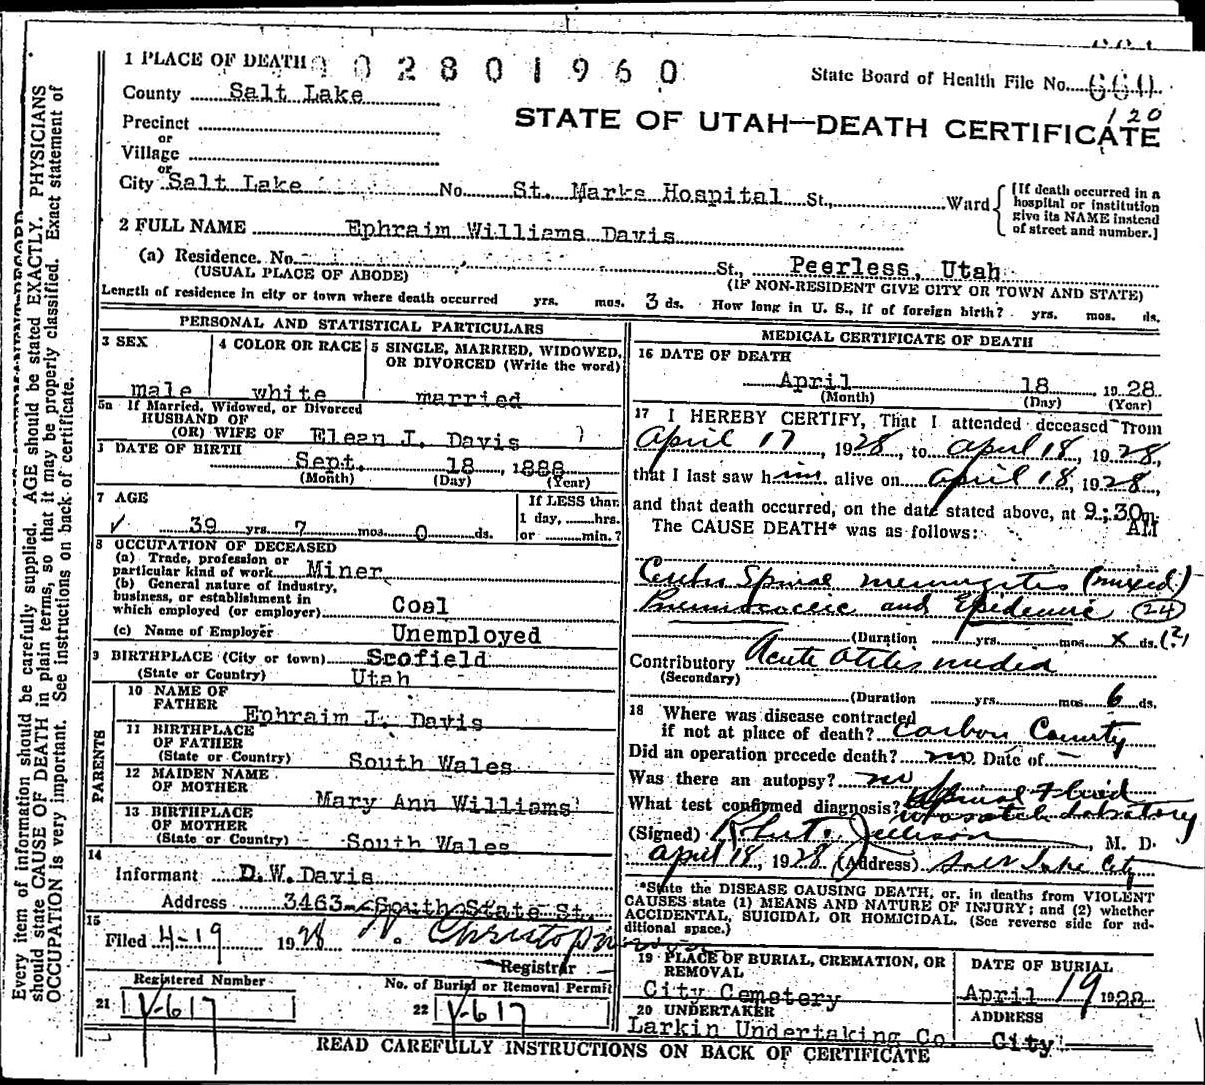 1 PLACE OF DEATH 02801960
State Board of Health File No. 660
120
County Salt Lake
STATE OF UTAH—DEATH CERTIFICATE
Precinct
or
Village
or
City Salt Lake No. St. Marks Hospital St., Ward
[If death occurred in a hospital or institution give its NAME instead of street and number.]
2 FULL NAME Ephraim Williams Davis
(a) Residence. No. St., Peerless, Utah
(USUAL PLACE OF ABODE) (IF NON-RESIDENT GIVE CITY OR TOWN AND STATE)
Length of residence in city or town where death occurred yrs. mos. 3 ds. How long in U. S., if of foreign birth? yrs. mos. ds.
PERSONAL AND STATISTICAL PARTICULARS
3 SEX
male
4 COLOR OR RACE
white
5 SINGLE, MARRIED, WIDOWED, OR DIVORCED (Write the word)
married
5a If Married, Widowed, or Divorced
HUSBAND OF
(OR) WIFE OF Elean J. Davis
DATE OF BIRTH
Sept. 18, 1888
(Month) (Day) (Year)
7 AGE
39 yrs. 7 mos. 0 ds.
If LESS than
1 day, hrs.
or min.?
8 OCCUPATION OF DECEASED
(a) Trade, profession or
particular kind of work Miner
(b) General nature of industry,
business, or establishment in
which employed (or employer) Coal
(c) Name of Employer Unemployed
9 BIRTHPLACE (City or town) Scofield
(State or Country) Utah
PARENTS
10 NAME OF
FATHER Ephraim L. Davis
11 BIRTHPLACE
OF FATHER
(State or Country) South Wales
12 MAIDEN NAME
OF MOTHER Mary Ann Williams
13 BIRTHPLACE
OF MOTHER
(State or Country) South Wales
14
Informant D.W.Davis
Address 3463 South State St.
15
Filed 4-19 1928
Registrar
Registered Number
21 V-617
No. of Burial or Removal Permit
22 V-617
MEDICAL CERTIFICATE OF DEATH
16 DATE OF DEATH
April 18 1928
(Month) (Day) (Year)
17 I HEREBY CERTIFY, That I attended deceased from
April 17, 1928, to April 18, 1928,
that I last saw him alive on April 18, 1928,
and that death occurred, on the date stated above, at 9:30 m.
AM
The CAUSE DEATH* was as follows:
Cerebro Spinal meningitis (mixed)
Pneumococcic and Epidemic (24)
(Duration yrs. mos. x ds. (?)
Contributory Acute Otitis media
(Secondary)
(Duration yrs. mos. 6 ds.
18 Where was disease contracted
if not at place of death? Carbon County
Did an operation precede death? no Date of —
Was there an autopsy? no
What test confirmed diagnosis? Spinal Fluid
Wasatch Laboratory
(Signed) Robert Jellison, M. D.
April 18, 1928 (Address) Salt Lake City
*State the DISEASE CAUSING DEATH, or, in deaths from VIOLENT
CAUSES state (1) MEANS AND NATURE OF INJURY; and (2) whether
ACCIDENTAL, SUICIDAL OR HOMICIDAL. (See reverse side for ad-
ditional space.)
19 PLACE OF BURIAL, CREMATION, OR
REMOVAL
City Cemetery
DATE OF BURIAL
April 19 1928
20 UNDERTAKER
Larkin Undertaking Co.
ADDRESS
City
READ CAREFULLY INSTRUCTIONS ON BACK OF CERTIFICATE
Every item of information should be carefully supplied. AGE should be stated EXACTLY. PHYSICIANS
should state CAUSE OF DEATH in plain terms, so that it may be properly classified. Exact statement of
OCCUPATION is very important. See instructions on back of certificate.